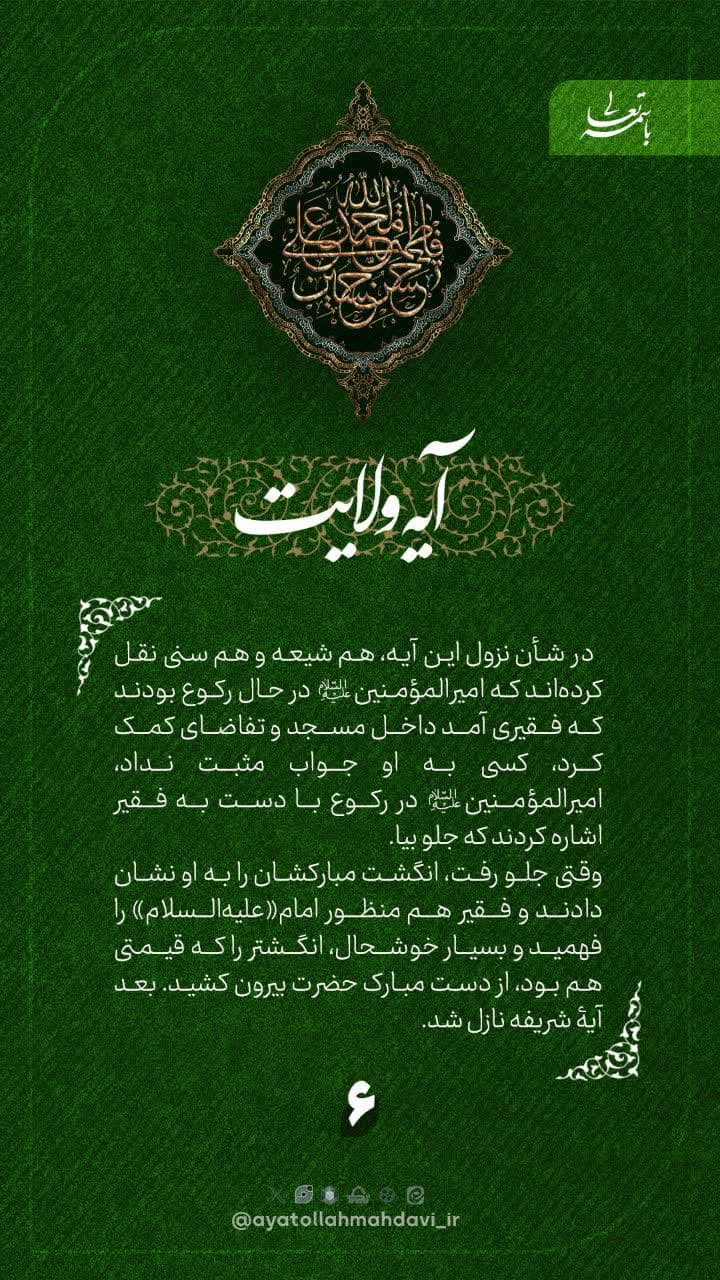 باسمه تعالی
الله
محمد علی
فاطمة
حسن حسین
آیه ولایت
در شأن نزول این آیه، هم شیعه و هم سنی نقل
کرده‌اند که امیرالمؤمنین علیه‌السلام در حال رکوع بودند
که فقیری آمد داخل مسجد و تقاضای کمک
کرد، کسی به او جواب مثبت نداد،
امیرالمؤمنین علیه‌السلام در رکوع با دست به فقیر
اشاره کردند که جلو بیا.
وقتی جلو رفت، انگشت مبارکشان را به او نشان
دادند و فقیر هم منظور امام«علیه‌السلام» را
فهمید و بسیار خوشحال، انگشتر را که قیمتی
هم بود، از دست مبارک حضرت بیرون کشید. بعد
آیهٔ شریفه نازل شد.
۶
@ayatollahmahdavi_ir